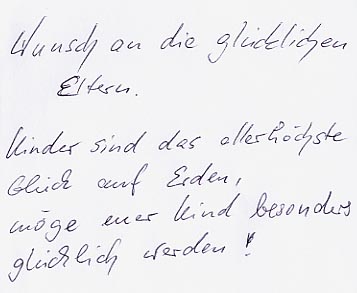 Wunsch an die glücklichen
Eltern.
Kinder sind das allerhöchste
Glück auf Erden,
möge euer Kind besonders
glücklich werden!